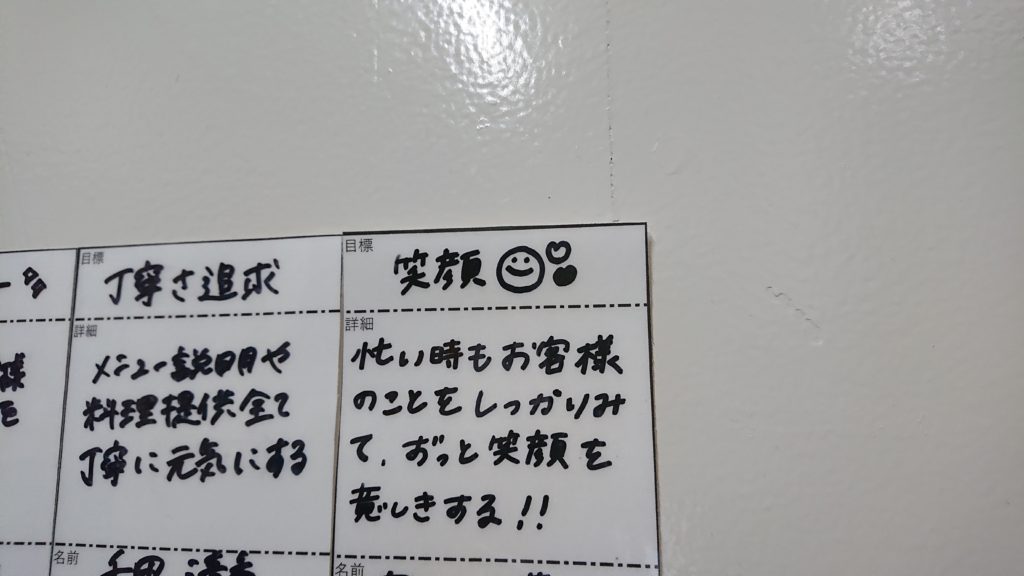 目標
丁寧さ追求
詳細
メニュー説明や
料理提供全て
丁寧に元気にする
名前
目標
笑顔
詳細
忙い時もお客様
のことをしっかりみ
て、ずっと笑顔を
意しきする!!
名前